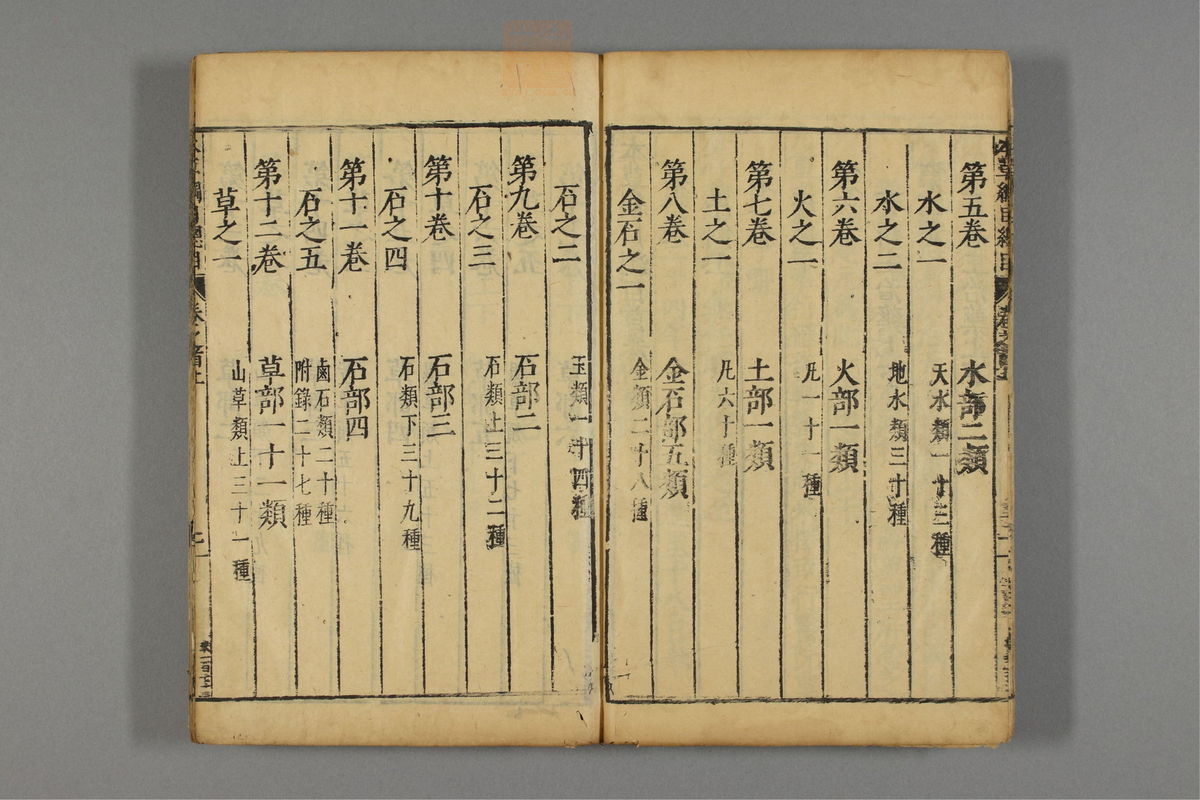 第五卷　水部二類
水之一　天水類一十三種
水之二　地水類三十種
第六卷　火部一類
火之一　凡一十一種
第七卷　土部一類
土之一　凡六十種
第八卷　金石部五類
金石之一　金類二十八種
石之二　玉類一十四種
第九卷　石部二
石之三　石類上三十二種
第十卷　石部三
石之四　石類下三十九種
第十一卷　石部四
石之五　鹵石類二十種
附錄二十七種
第十二卷　草部一十一類
草之一　山草類上三十一種